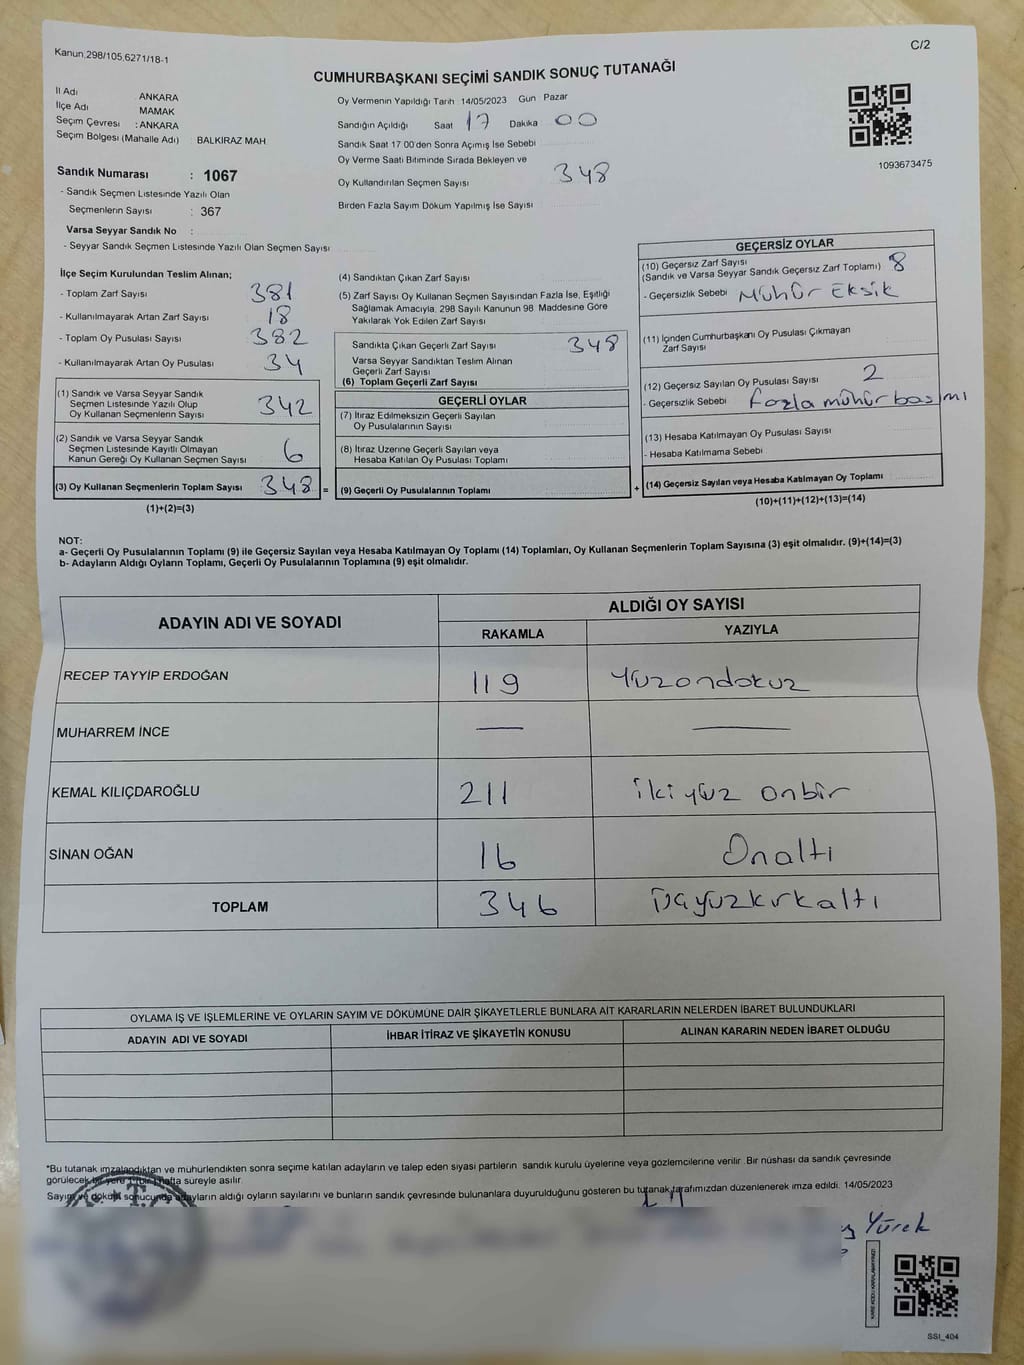 Kanun.298/105.6271/18-1
C/2
CUMHURBAŞKANI SEÇİMİ SANDIK SONUÇ TUTANAĞI
İl Adı ANKARA
İlçe Adı MAMAK
Seçim Çevresi : ANKARA
Seçim Bölgesi (Mahalle Adı) BALKİRAZ MAH
Sandık Numarası : 1067
- Sandık Seçmen Listesinde Yazılı Olan
Seçmenlerin Sayısı : 367
Varsa Seyyar Sandık No :
- Seyyar Sandık Seçmen Listesinde Yazılı Olan Seçmen Sayısı
Oy Vermenin Yapıldığı Tarih :14/05/2023 Gün Pazar
Sandığın Açıldığı Saat 17 Dakika 00
Sandık Saat 17 00'den Sonra Açımış İse Sebebi
Oy Verme Saati Bitiminde Sırada Bekleyen ve
Oy Kullandırılan Seçmen Sayısı 348
Birden Fazla Sayım Döküm Yapılmış İse Sayısı
1093673475
İlçe Seçim Kurulundan Teslim Alınan;
- Toplam Zarf Sayısı 381
- Kullanılmayarak Artan Zarf Sayısı 18
- Toplam Oy Pusulası Sayısı 382
- Kullanılmayarak Artan Oy Pusulası 34
(1) Sandık ve Varsa Seyyar Sandık
Seçmen Listesinde Yazılı Olup
Oy Kullanan Seçmenlerin Sayısı 342
(2) Sandık ve Varsa Seyyar Sandık
Seçmen Listesinde Kayıtlı Olmayan
Kanun Gereği Oy Kullanan Seçmen Sayısı 6
(3) Oy Kullanan Seçmenlerin Toplam Sayısı 348 =
(1)+(2)=(3)
(4) Sandıktan Çıkan Zarf Sayısı
(5) Zarf Sayısı Oy Kullanan Seçmen Sayısından Fazla İse, Eşitliği
Sağlamak Amacıyla, 298 Sayılı Kanunun 98 Maddesine Göre
Yakılarak Yok Edilen Zarf Sayısı
Sandıkta Çıkan Geçerli Zarf Sayısı 348
Varsa Seyyar Sandıktan Teslim Alınan
Geçerli Zarf Sayısı
(6) Toplam Geçerli Zarf Sayısı
GEÇERLİ OYLAR
(7) İtiraz Edilmeksizin Geçerli Sayılan
Oy Pusulalarının Sayısı
(8) İtiraz Üzerine Geçerli Sayılan veya
Hesaba Katılan Oy Pusulası Toplamı
(9) Geçerli Oy Pusulalarının Toplamı +
GEÇERSİZ OYLAR
(10) Geçersiz Zarf Sayısı
(Sandık ve Varsa Seyyar Sandık Geçersiz Zarf Toplamı) 8
- Geçersizlik Sebebi Mühür Eksik
(11) İçinden Cumhurbaşkanı Oy Pusulası Çıkmayan
Zarf Sayısı
(12) Geçersiz Sayılan Oy Pusulası Sayısı 2
- Geçersizlik Sebebi fazla mühür basımı
(13) Hesaba Katılmayan Oy Pusulası Sayısı
- Hesaba Katılmama Sebebi
(14) Geçersiz Sayılan veya Hesaba Katılmayan Oy Toplamı
(10)+(11)+(12)+(13)=(14)
NOT:
a- Geçerli Oy Pusulalarının Toplamı (9) ile Geçersiz Sayılan veya Hesaba Katılmayan Oy Toplamı (14) Toplamları, Oy Kullanan Seçmenlerin Toplam Sayısına (3) eşit olmalıdır. (9)+(14)=(3)
b- Adayların Aldığı Oyların Toplamı, Geçerli Oy Pusulalarının Toplamına (9) eşit olmalıdır.
ADAYIN ADI VE SOYADI ALDIĞI OY SAYISI
RAKAMLA YAZIYLA
RECEP TAYYİP ERDOĞAN 119 Yüzondokuz
MUHARREM İNCE — —
KEMAL KILIÇDAROĞLU 211 ikiyüz onbir
SİNAN OĞAN 16 Onaltı
TOPLAM 346 Üçyüzkırkaltı
OYLAMA İŞ VE İŞLEMLERİNE VE OYLARIN SAYIM VE DÖKÜMÜNE DAİR ŞİKAYETLERLE BUNLARA AİT KARARLARIN NELERDEN İBARET BULUNDUKLARI
ADAYIN ADI VE SOYADI İHBAR İTİRAZ VE ŞİKAYETİN KONUSU ALINAN KARARIN NEDEN İBARET OLDUĞU
*Bu tutanak imzalandıktan ve mühürlendikten sonra seçime katılan adayların ve talep eden siyasi partilerin sandık kurulu üyelerine veya gözlemcilerine verilir. Bir nüshası da sandık çevresinde
görülecek bir yere 1 bir hafta süreyle asılır.
Sayım ve döküm sonucunda adayların aldığı oyların sayılarını ve bunların sandık çevresinde bulunanlara duyurulduğunu gösteren bu tutanak tarafımızdan düzenlenerek imza edildi. 14/05/2023
Yürek
KARE KODU KARALAMAYINIZ!
SSI_404